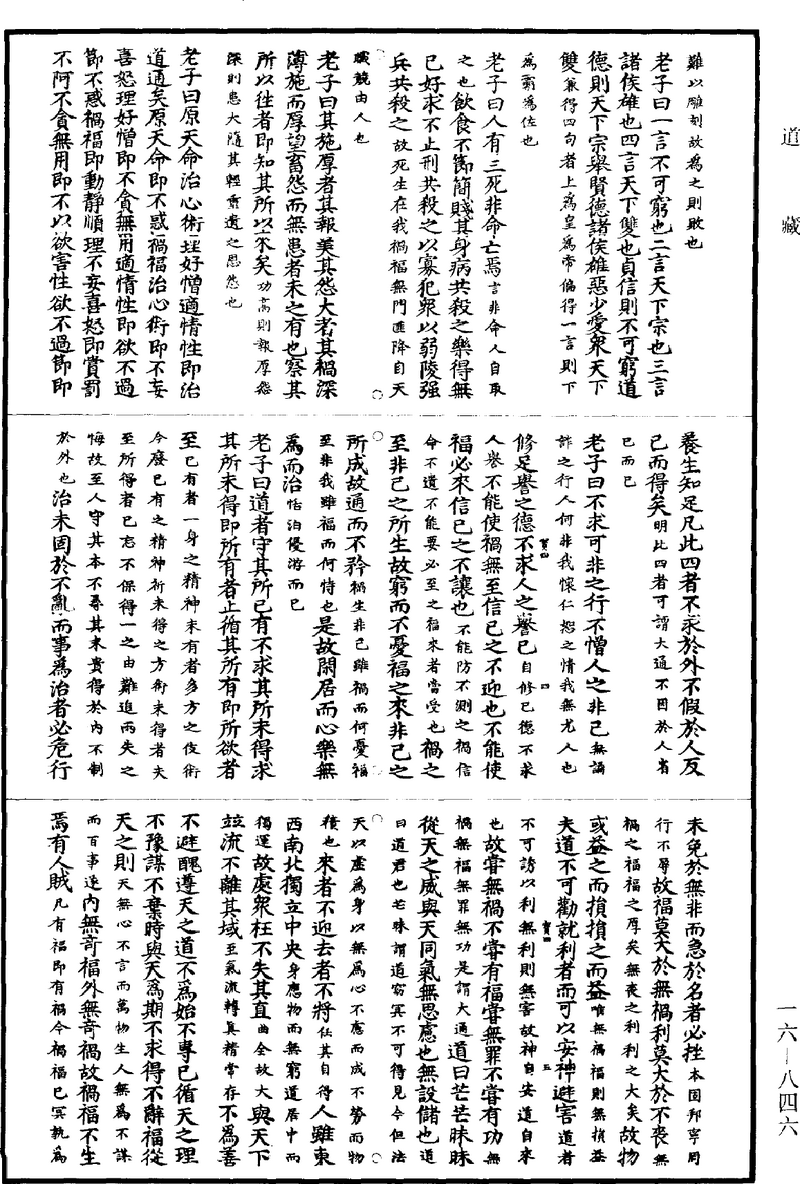 道藏
雖以雕刻故為之則敗也
老子曰一言不可窮也二言天下宗也三言
諸侯雄也四言天下雙也貞信則不可窮道
德則天下宗舉賢德諸侯雄惡少愛衆天下
雙兼得四句者上為皇為帝偏得一言則下
為霸為佐也
老子曰人有三死非命亡焉言非命人自取
之也飲食不節簡賤其身病共殺之樂得無
已好求不止刑共殺之以寡犯衆以弱陵强
兵共殺之故死生在我禍福無門匪降自天
職競由人也
老子曰其施厚者其報美其怨大者其禍深
薄施而厚望畜怨而無患者未之有也察其
所以往者即知其所以來矣功高則報厚怨
深則患大隨其輕重遺之思怨也
老子曰原天命治心術理好憎適情性即治
道通矣原天命即不惑禍福治心術即不妄
喜怒理好憎即不貪無用適情性即欲不過
節不惑禍福即動靜順理不妄喜怒即賞罰
不阿不貪無用即不以欲害性欲不過節即
養生知足凡此四者不求於外不假於人反
己而得矣明比四者可謂大通不因於人省
已而已
老子曰不求可非之行不憎人之非己無諂
詐之行人何非我懷仁恕之情我無尤人也
修足譽之德不求人之譽已自修已德不求
人譽不能使禍無至信已之不迎也不能使
福必來信已之不讓也不能防不測之禍信
命不道不能要必至之福來者當受也禍之
至非己之所生故窮而不憂福之來非己之
所成故通而不矜禍生非己雖禍而何憂福
至非我雖福而何恃也是故閑居而心樂無
為而治恬泊優游而已
老子曰道者守其所已有不求其所未得求
其所未得即所有者亡循其所有即所欲者
至已有者一身之精神未有者多方之伎術
今廢已有之精神祈未得之方術未得者未
至所得者已忘不保得一之由難追兩失之
悔故至人守其本不尋其末貴得於內不制
於外也治未固於不亂而事為治者必危行
未免於無非而急於名者必挫本固邦寧周
行不辱故福莫大於無禍利莫大於不喪無
禍之福福之厚矣無喪之利利之大矣故物
或益之而損損之而益唯無禍福則無損益
夫道不可勸就利者而可以安神避害道者
不可謗以利無利則無害故神自安道自來
也故嘗無禍不嘗有福嘗無罪不嘗有功無
禍無福無罪無功是謂大通道曰芒芒昧昧
從天之威與天同氣無思慮也無設儲也道
曰道君也芒昧謂道窈冥不可得見令但法
天以虛為身以無為心不慮而成不勞而物
積也來者不迎去者不將任其自得人雖東
西南北獨立中央身應物而無窮道居中而
獨運故處衆枉不失其直曲全故大與天下
竝流不離其域至氣流轉真精常存不為善
不避醜遵天之道不為始不專己循天之理
不豫謀不棄時與天為期不求得不辭福從
天之則天無心不言而萬物生人無為不謀
而百事遂內無奇福外無奇禍故禍福不生
焉有人賊凡有福即有禍今禍福已冥孰為
一六—八四六